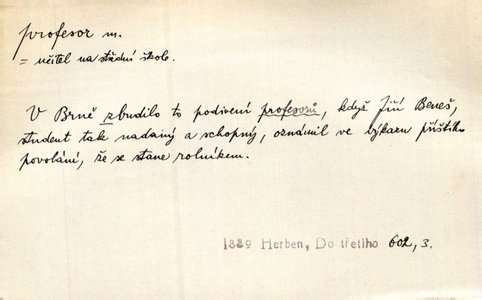 profesor m.
= učitel na střední škole.
V Brně zbudilo to podivení profesorů, když Jiří Beneš,
student tak nadaný a schopný, oznámil ve výkazu příštího
povolání, že se stane rolníkem.
1889 Herben, Do třetího 602, 3.